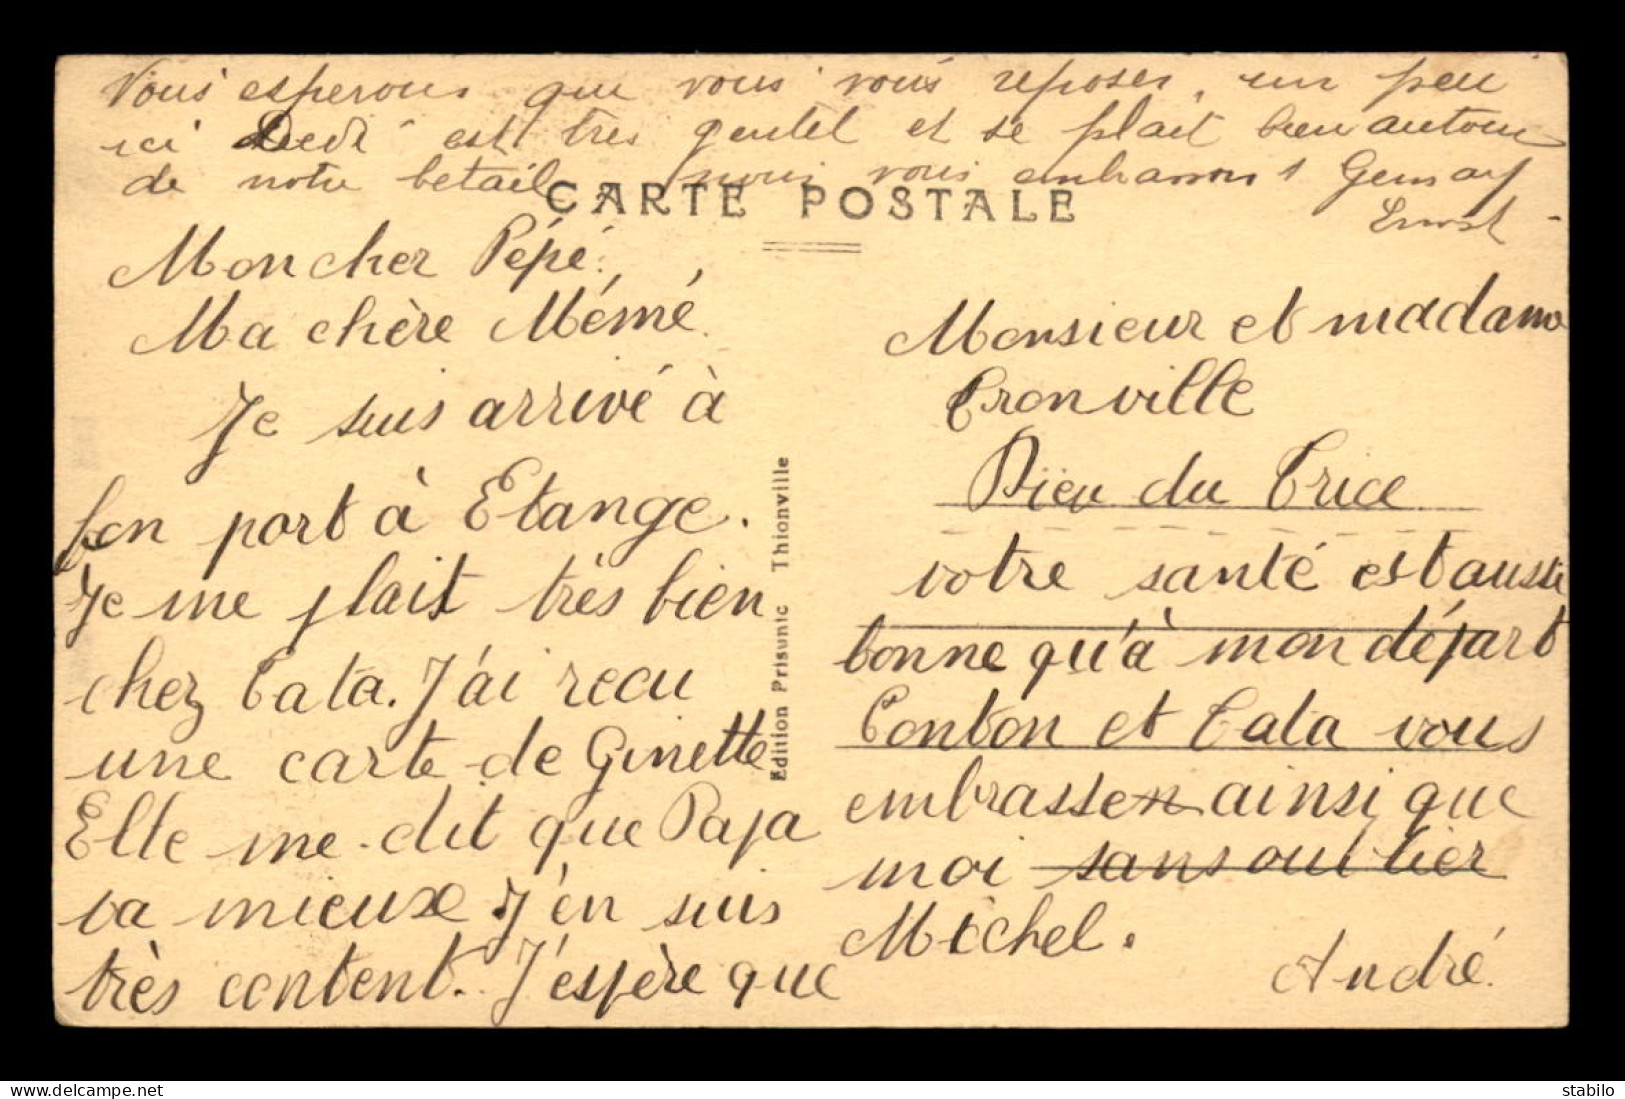 Nous esperons que vous vous reposer, un peu
ici Dédé est tres gentil et se plait bien autour
de notre betail nous vous embrassons
Ernest
CARTE POSTALE
Mon cher Pépé.
Ma chère Mémé.
Je suis arrivé à
bon port à Etange.
Je me plait très bien
chez Tata. J'ai recu
une carte de Ginette
Elle me dit que Papa
va mieux. J'en suis
très content. J'espère que
Edition Prisunic Thionville
Monsieur et madame
Cronville
Dieu du Trice
votre santé est aussi
bonne qu'à mon départ
Tonton et Tata vous
embrassen ainsi que
moi sans oublier
Michel.
André.
stabilo
www.delcampe.net